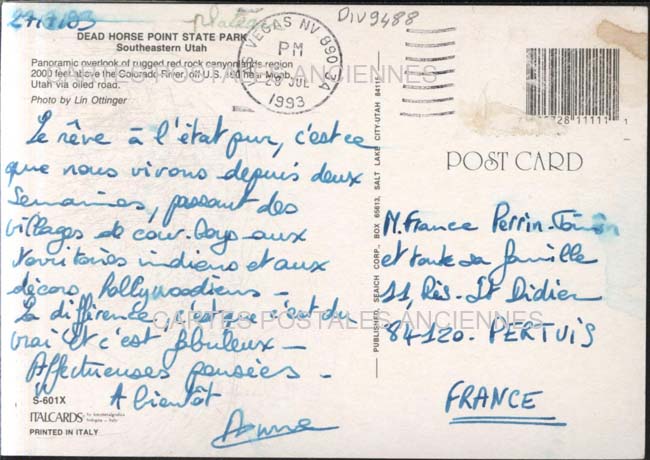 DIV9488
DEAD HORSE POINT STATE PARK
Southeastern Utah
Panoramic overlook of rugged red rock canyonlands region
2000 feet above the Colorado River, off U.S. 160 near Moab,
Utah via oiled road.
Photo by Lin Ottinger
VEGAS NV 890
PM
28 JUL
1993
CARTES POSTALES ANCIENNES
Le rêve à l'état pur, c'est ce
que nous vivons depuis deux
Semaines, passant des
villages de cow-boys aux
territoires indiens et aux
décors hollywoodiens -
La différence, c'est que c'est du
vrai et c'est fabuleux -
Affectueuses pensées -
A bientôt
S-601X
ITALCARDS
bologna - italy
PRINTED IN ITALY
PUBLISHED, SEAICH CORP., BOX 65613, SALT LAKE CITY, UTAH 84115
POST CARD
M. France Perrin
et toute sa famille
11, Rés. St Didier
84120 - PERTUIS
FRANCE
CARTES POSTALES ANCIENNES